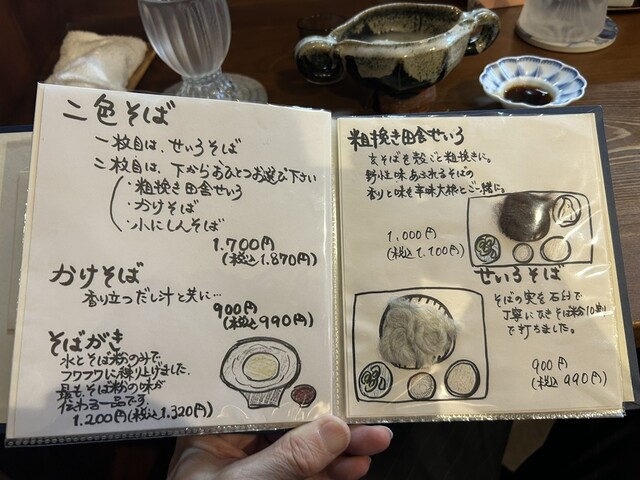 二色そば
一枚目は、せいろそば
二枚目は、下からおひとつお選び下さい
・粗挽き田舎せいろ
・かけそば
・小にしんそば
1.700円
(税込1.870円)
かけそば
香り立つだし汁と共に…
900円
(税込990円)
そばがき
水とそば粉のみで、
フワフワに練り上げました。
最も、そば粉の味が
伝わる一品です。
1.200円(税込1.320円)
粗挽き田舎せいろ
玄そばを殻ごと粗挽きに。
野性味あふれるそばの
香りと味を辛味大根とご一緒に。
1,000円
(税込1.100円)
せいろそば
そばの実を石臼で
丁寧にひきそば粉10割
で打ちました。
900円
(税込990円)